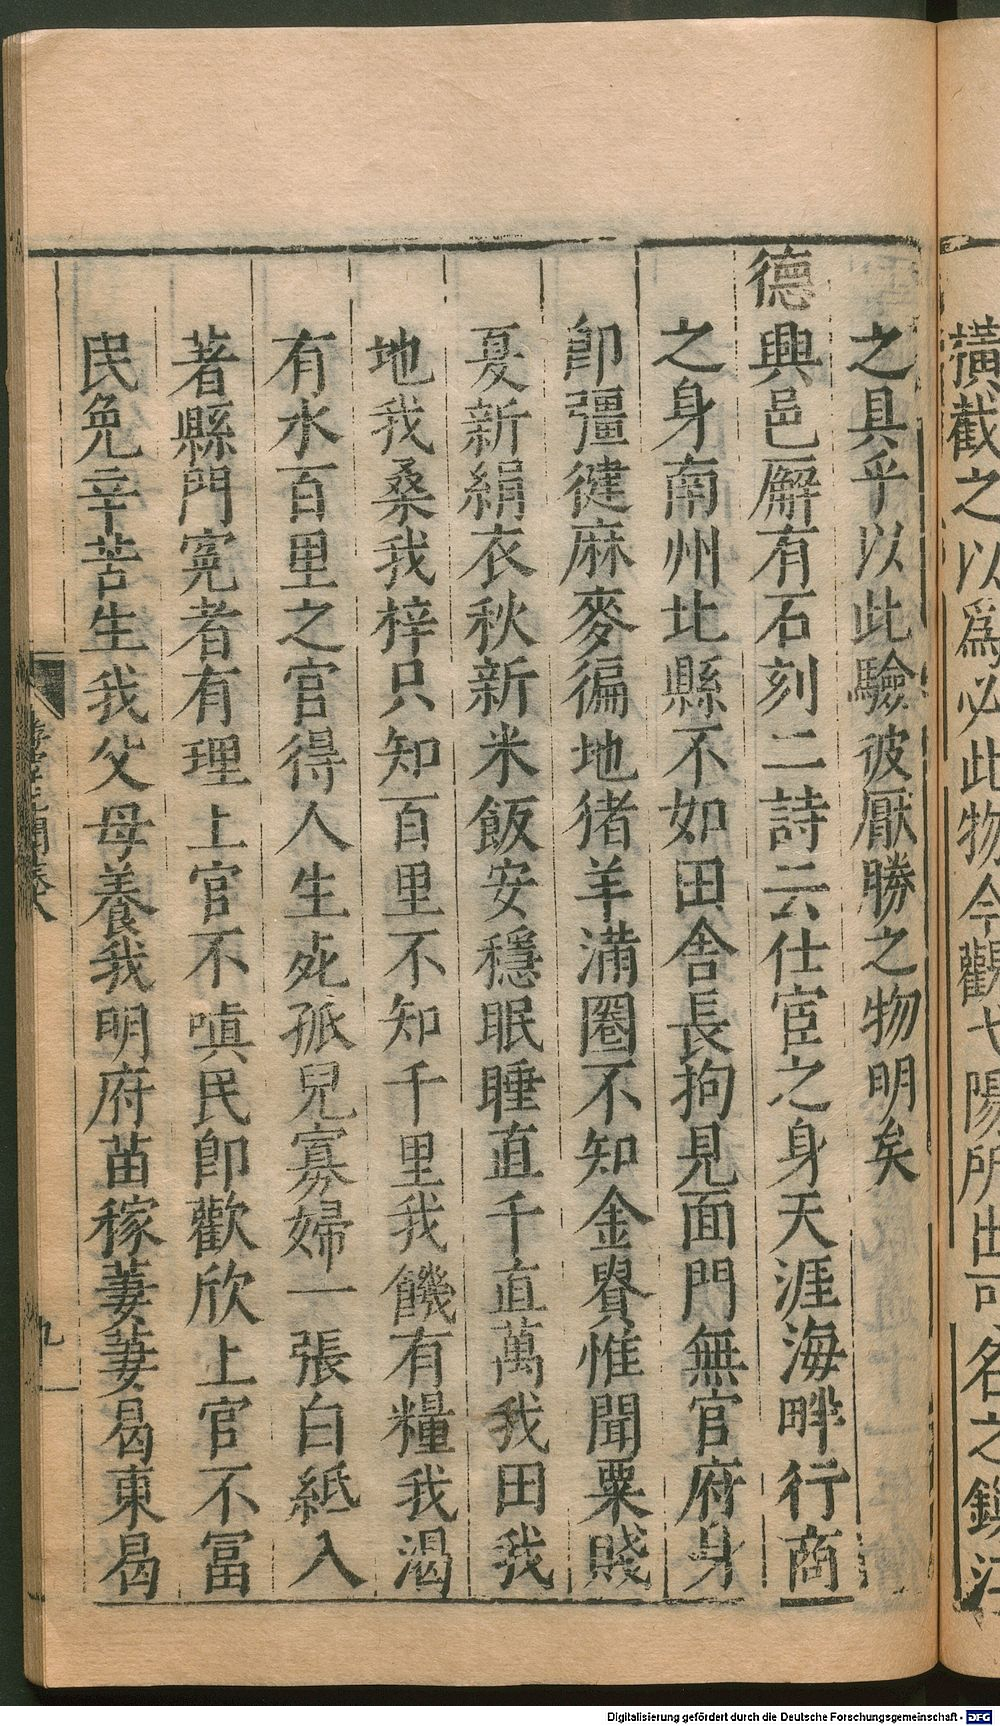 橫截之以爲必此物今觀弋陽所出可名之鎮江
之具乎以此驗彼厭勝之物明矣
德興邑廨有石刻二詩云仕宦之身天涯海畔行商
之身南州北縣不如田舍長拘見面門無官府身
卽彊健麻麥徧地猪羊滿圈不知金貴惟聞粟賤
夏新絹衣秋新米飯安穩眠睡直千直萬我田我
地我桑我梓只知百里不知千里我饑有糧我渴
有水百里之官得人生死孤兒寡婦一張白紙入
著縣門寃者有理上官不嗔民卽歡欣上官不富
民免辛苦生我父母養我明府苗稼萋萋曷東曷
九
Digitalisierung gefördert durch die Deutsche Forschungsgemeinschaft - DFG